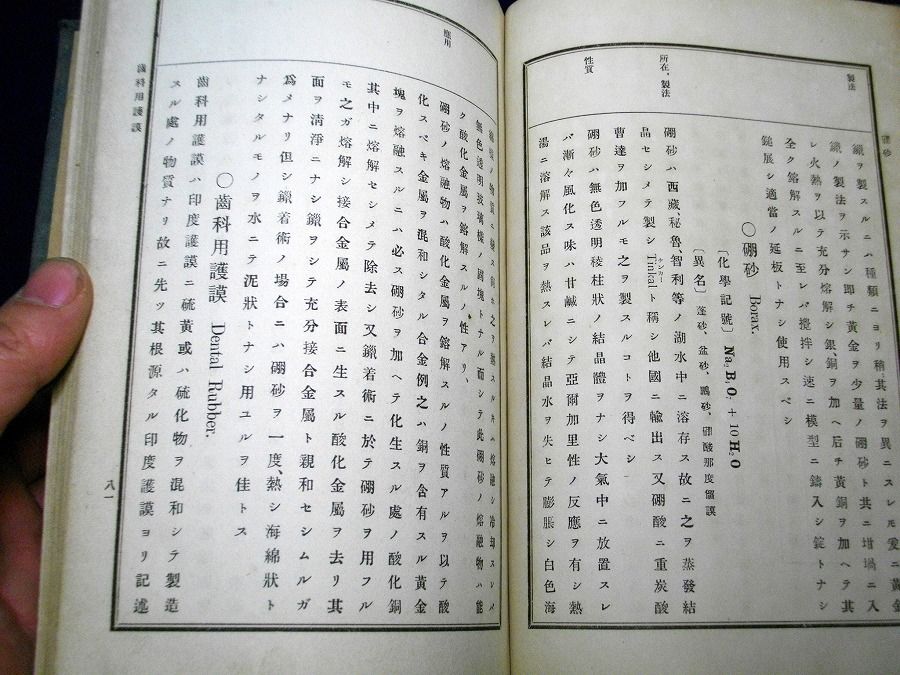 硼砂
製法
鑞ヲ製スルニハ種類ニヨリ稍其法ヲ異ニスレモ爰ニ黃金
鑞ノ製法ヲ示サン卽チ黃金ヲ少量ノ硼砂ト共ニ坩堝ニ入
レ火熱ヲ以テ充分熔解シ銀、銅ヲ加ヘ后チ黃銅ヲ加ヘテ其
全ク鎔解スルニ至レバ攪拌シ速ニ模型ニ鑄入シ錠トナシ
鎚展シ適當ノ延板トナシ使用スベシ
〇硼砂 Borax.
〔化學記號〕 Na₂B₄O₇ + 10H₂O
〔異名〕 蓬砂、盆砂、鵬砂、硼酸那度𠌃謨
所在、製法
硼砂ハ西藏、秘魯智利等ノ湖水中ニ溶存ス故ニ之ヲ蒸發結
晶セシメテ製シ Tinkalト稱シ他國ニ輸出ス又硼酸ニ重炭酸
チンカー
曹達ヲ加フルモ之ヲ製スルコトヲ得ベシ
性質
硼砂ハ無色透明稜柱狀ノ結晶體ヲナシ大氣中ニ放置スレ
バ漸々風化ス味ハ甘鹹ニシテ亞爾加里性ノ反應ヲ有シ熱
湯ニ溶解ス該品ヲ熱スレバ結晶水ヲ失ヒテ膨脹シ白色海
無色透明玻璃樣ノ固塊トナル而シテ此硼砂ノ熔融物ハ能
ク酸化金屬ヲ鎔解スルノ性アリ、
應用
硼砂ノ熔融物ハ酸化金屬ヲ鎔解スルノ性質アルヲ以テ酸
化スベキ金屬ヲ混和シタル合金例之ハ銅ヲ含有スル黃金
塊ヲ熔融スルニハ必ス硼砂ヲ加ヘテ化生スル處ノ酸化銅
其中ニ熔解セシメテ除去シ又鑞着術ニ於テ硼砂ヲ用フル
モ之ガ熔解シ接合金屬ノ表面ニ生スル酸化金屬ヲ去リ其
面ヲ清淨ニナシ鑞ヲシテ充分接合金屬ト親和セシムルガ
爲メナリ但シ鑞着術ノ場合ニハ硼砂ヲ一度、熱シ海綿狀ト
ナシタルモノヲ水ニテ泥狀トナシ用ユルヲ佳トス
〇齒科用護謨 Dental Rubber.
齒科用護謨ハ印度護謨ニ硫黃或ハ硫化物ヲ混和シテ製造
スル處ノ物質ナリ故ニ先ツ其根源タル印度護謨ヨリ記述
齒科用護謨
八一